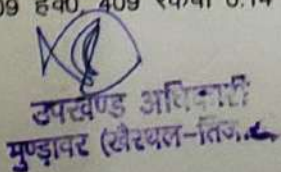 09 हैक्0 409 रकबा 0.14
उपखण्ड अधिकारी
मुण्डावर (खैरथल-तिज